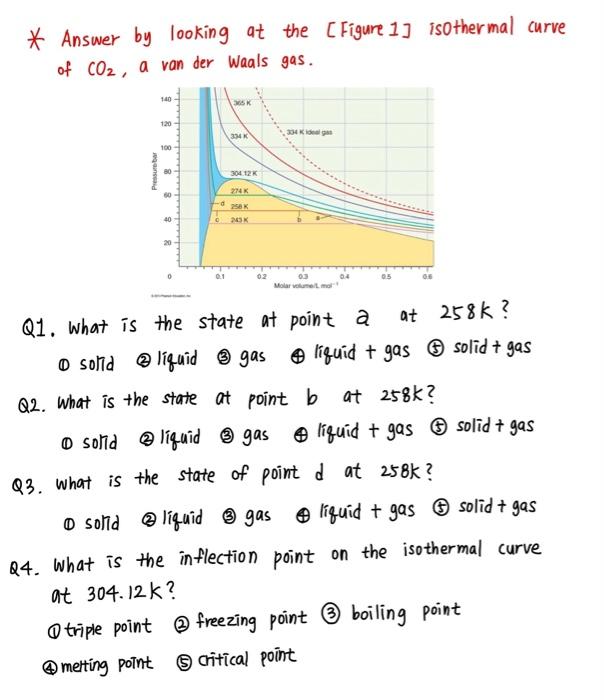 * Answer by looking at the [Figure 1] isothermal curve
of CO₂, a van der Waals gas.
140
120
100
80
60
40
20
0
Pressure/bar
365 K
334 K
334 K Ideal gas
304.12 K
274 K
d
258 K
c
243 K
b
a
0.1 0.2 0.3 0.4 0.5 0.6
Molar volume/L mol⁻¹
Q1. What is the state at point a at 258K?
① solid ② liquid ③ gas ④ liquid + gas ⑤ solid + gas
Q2. What is the state at point b at 258K?
① solid ② liquid ③ gas ④ liquid + gas ⑤ solid + gas
Q3. What is the state of point d at 258K?
① solid ② liquid ③ gas ④ liquid + gas ⑤ solid + gas
Q4. What is the inflection point on the isothermal curve
at 304.12K?
① triple point ② freezing point ③ boiling point
④ melting point ⑤ critical point